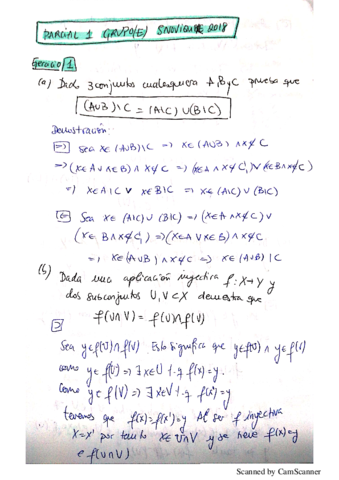 PARCIAL 1 GRUPO(E) 5 NOVIEMBRE 2018
Ejercicio 1
(a) Dados 3 conjuntos cualesquiera A, B y C prueba que
(A∪B)\C = (A\C)∪(B\C)
Demostración:
⇒) Sea x∈(A∪B)\C ⇒ x∈(A∪B) ∧ x∉C
⇒ (x∈A ∨ x∈B) ∧ x∉C ⇒ (x∈A ∧ x∉C) ∨ (x∈B ∧ x∉C)
⇒ x∈A\C ∨ x∈B\C ⇒ x∈(A\C)∪(B\C)
⇐ Sea x∈(A\C)∪(B\C) ⇒ (x∈A ∧ x∉C) ∨
(x∈B ∧ x∉C) ⇒ (x∈A ∨ x∈B) ∧ x∉C
⇒ x∈(A∪B) ∧ x∉C ⇒ x∈(A∪B)\C
(b) Dada una aplicación inyectiva f: X→Y y
dos subconjuntos U, V ⊂ X demuestra que
f(U∩V) = f(U)∩f(V)
⊇
Sea y∈f(U)∩f(V). Esto significa que y∈f(U) ∧ y∈f(V)
como y∈f(U) ⇒ ∃x∈U t.q f(x)=y.
Como y∈f(V) ⇒ ∃x'∈V t.q f(x')=y.
tenemos que f(x)=f(x')=y Al ser f inyectiva
x=x' por tanto x∈U∩V y se tiene f(x)=y
∈ f(U∩V)
Scanned by CamScanner